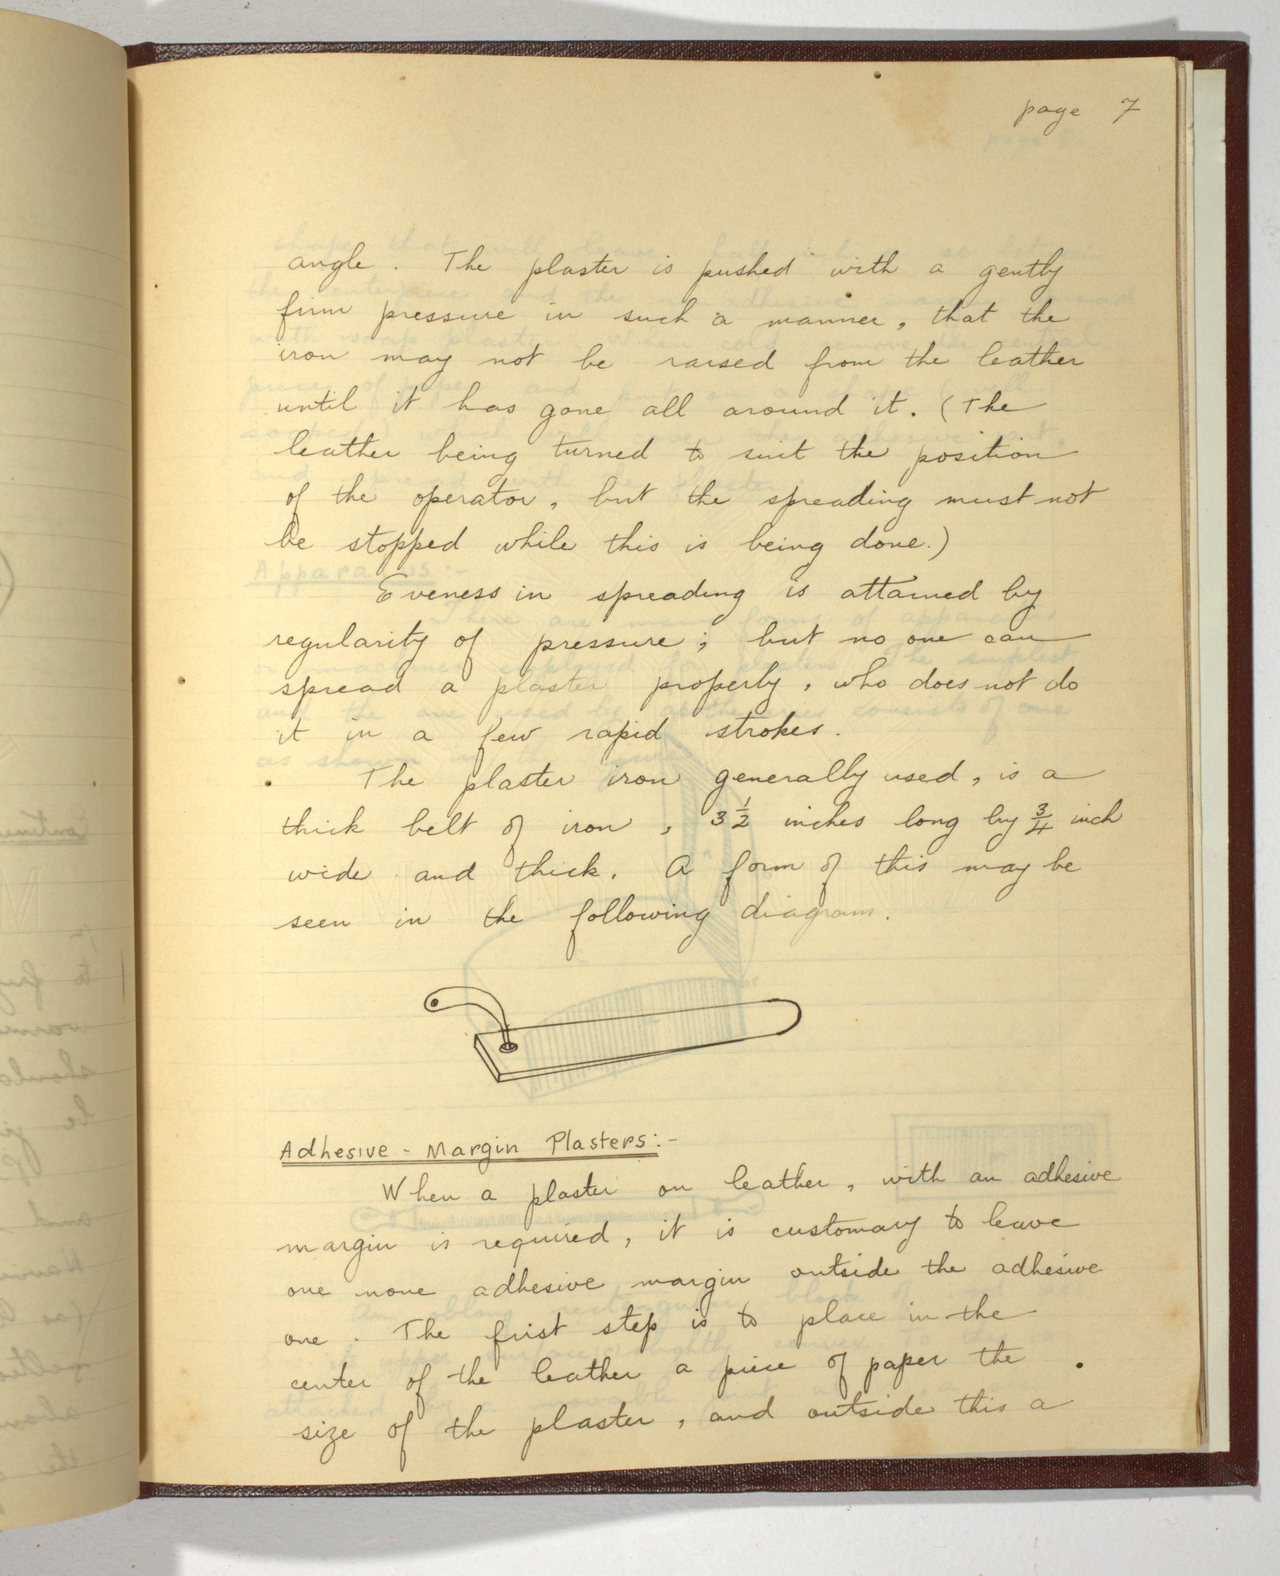 page 7
angle. The plaster is pushed with a gently
firm pressure in such a manner, that the
iron may not be raised from the leather
until it has gone all around it. (The
leather being turned to suit the position
of the operator, but the spreading must not
be stopped while this is being done.)
Eveness in spreading is attained by
regularity of pressure; but no one can
spread a plaster properly, who does not do
it in a few rapid strokes.
The plaster iron generally used, is a
thick belt of iron, 3 1/2 inches long by 3/4 inch
wide and thick. A form of this may be
seen in the following diagram.
Adhesive - Margin Plasters:-
When a plaster on leather, with an adhesive
margin is required, it is customary to leave
one none adhesive margin outside the adhesive
one. The first step is to place in the
center of the leather a piece of paper the
size of the plaster, and outside this a